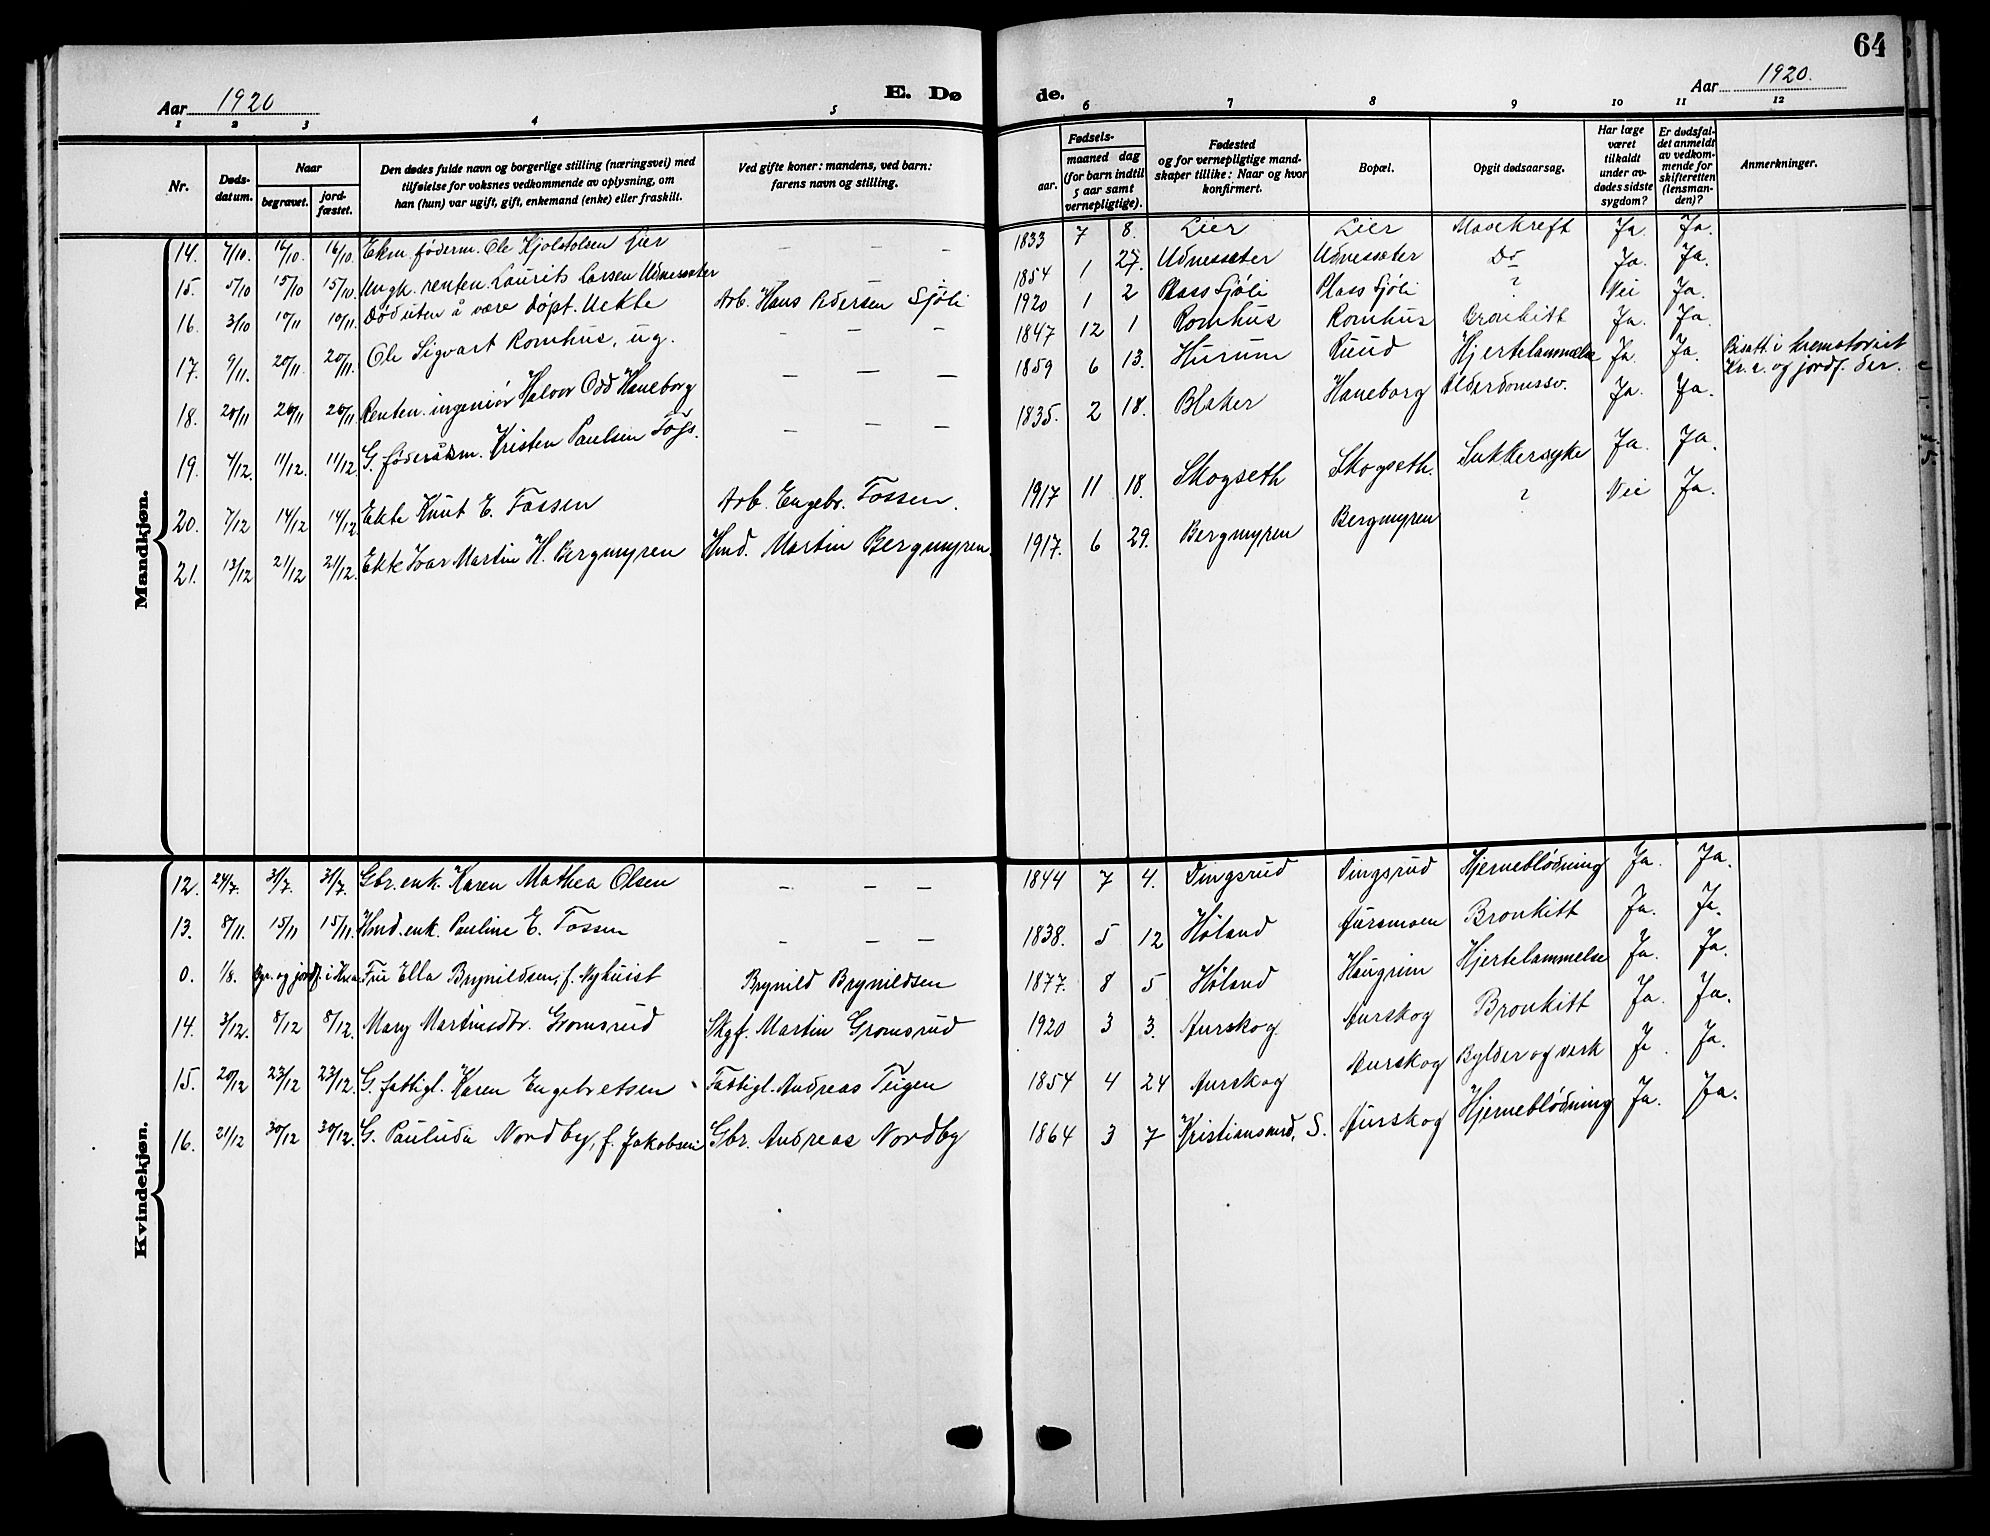 64
Aar 1920
E. Dø
de.
Aar 1920.
1 2 3 4 5 6 7 8 9 10 11 12
Nr.
Døds-
datum.
Naar
begravet.
jord-
fæstet.
Den dødes fulde navn og borgerlige stilling (næringsvei) med
tilføielse for voksnes vedkommende av oplysning, om
han (hun) var ugift, gift, enkemand (enke) eller fraskilt.
Ved gifte koner: mandens, ved barn:
farens navn og stilling.
Fødsels-
aar.
maaned dag
(for barn indtil
5 aar samt
vernepligtige).
Fødested
og for vernepligtige mand-
skaper tillike: Naar og hvor
konfirmert.
Bopæl.
Opgit dødsaarsag.
Har læge
været
tilkaldt
under av-
dødes sidste
sygdom?
Er dødsfal-
det anmeldt
av vedkom-
mende for
skifteretten
(lensman-
den)?
Anmerkninger.
Mandkjøn.
14. 7/10. 16/10. 16/10. Ekm. føderm. Ole Kjølstolsen Lier — — — 1833 7 8. Lier Lier Mavekreft Ja. Ja.
15. 5/10 15/10 15/10. Ungk. renten. Laurits Larsen Udnessæter 1854 1 27. Udnessæter Udnessæter Do Ja. Ja.
16. 3/10 10/11 10/11. Død uten å være døpt. Uekte Arb. Hans Edersen Sjøli 1920 1 2 Plass Sjøli Plass Sjøli ? Nei Ja.
17. 9/11. 20/11. 20/11. Ole Sigvart Romhus, ug. — — — 1847 12 1 Romhus Romhus Bronkitt Ja. Ja.
18. 20/11 26/11 20/11. Renten. ingeniør Halvor Odd Haneborg — — — 1859 6 13. Hurum Ruud Hjertelammelse Ja. Ja. Bisatt i krematoriet
Kr.a. og jordf. der.
19. 4/12. 11/12. 11/12. G. føderåsm. Kristen Paulsen Togs. — — — 1835. 2 18. Blaker Haneborg Alderdomssv. Ja. Ja.
20. 7/12 14/12 14/12. Ekte Knut E. Tossen Arb. Engebr. Tossen. 1917 11 18. Skogseth Skogseth. Sukkersyke Ja. Ja.
21. 13/12 21/12 21/12. Ekte Ivar Martin H. Bergmyren Hmd. Martin Bergmyren. 1917. 6 29. Bergmyren Bergmyren ? Nei Ja.
Kvindekjøn.
12. 24/7. 31/7. 31/7. Gbr. enk. Karen Mathea Olsen — — — 1844 7 4. Dingsrud Dingsrud Hjerneblødning Ja. Ja.
13. 8/11. 15/11 15/11. Hmd. enk. Pauline E. Tossen — — — 1838. 5 12 Høland Aursmoen Bronkitt Ja. Ja.
0. 1/8. og jordf. i Fru Ella Brynildsen, f. Nyhuist Brynild Brynildsen 1877. 8 5 Høland Haugrim Hjertelammelse Ja. Ja.
14. 3/12. 8/12 8/12. Mary Martinsdtr. Gromsrud Skgf. Martin Gromsrud 1920 3 3. Aurskog Aurskog Bronkitt Ja. Ja.
15. 20/12 23/12 23/12. G. fattigl. Karen Engebretsen Fattigl. Andreas Teigen 1854 4 24 Aurskog Aurskog Bylder og verk Ja. Ja.
16. 21/12 30/12 30/12. G. Pauluda Nordby, f. Jakobsen Gbr. Andreas Nordby 1864 3 7 Kristiansund, S. Aurskog Hjerneblødning Ja. Ja.